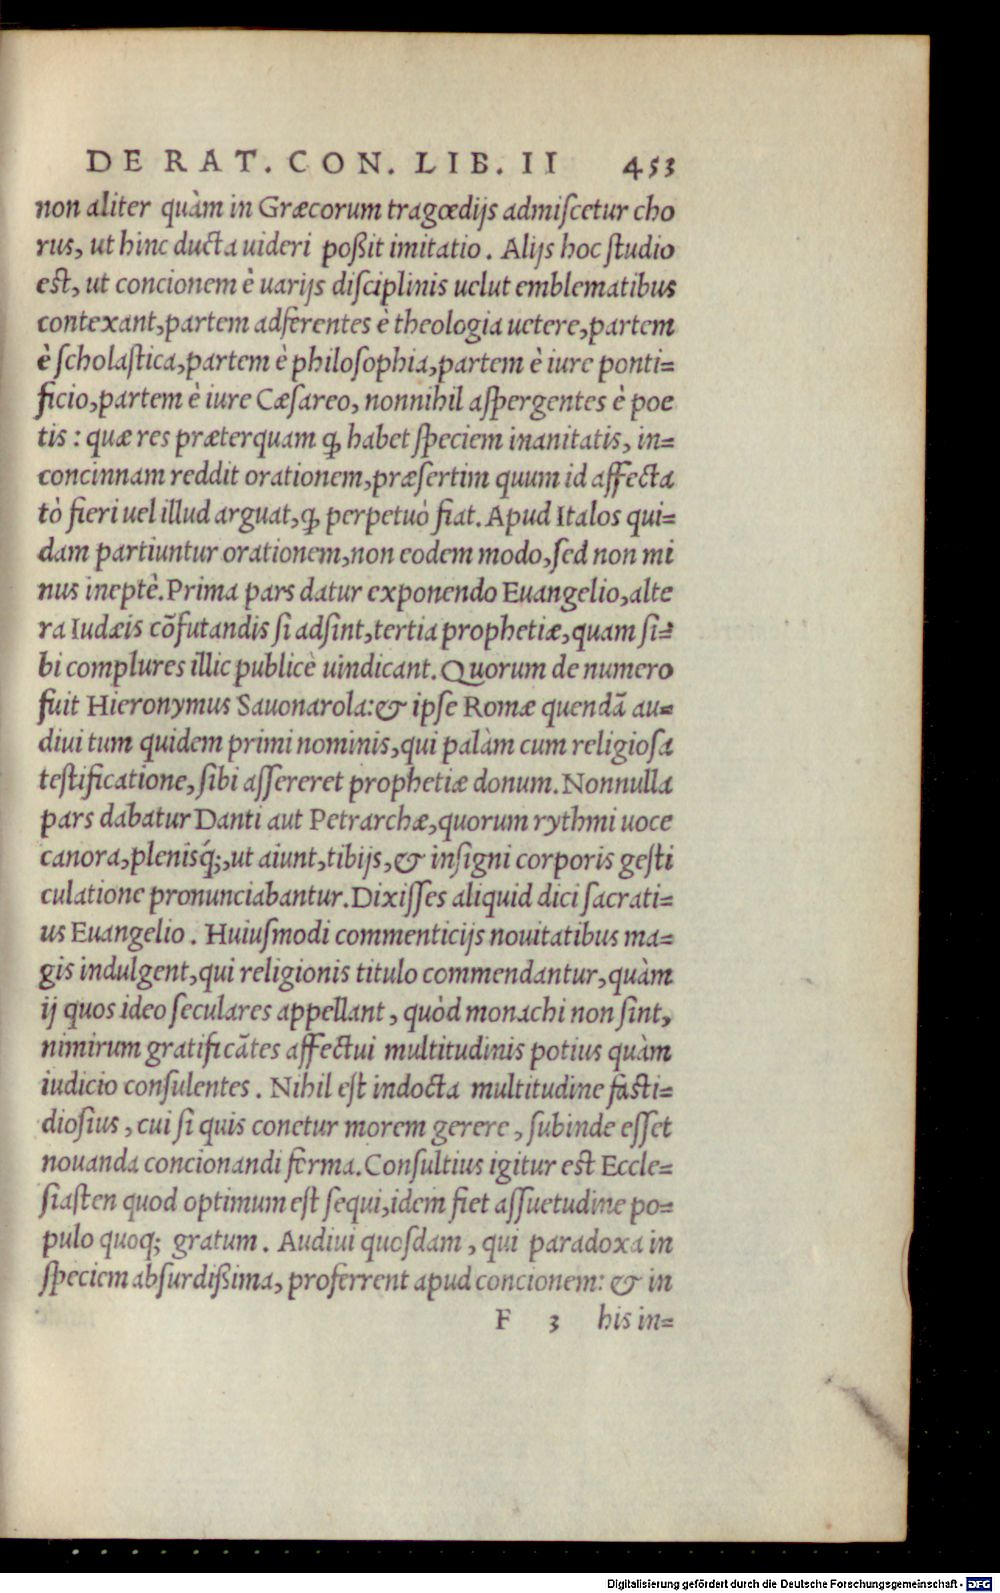 DE RAT. CON. LIB. II 453
non aliter quàm in Græcorum tragœdijs admiscetur cho
rus, ut hinc ducta uideri poßit imitatio. Alijs hoc studio
est, ut concionem è uarijs disciplinis uelut emblematibus
contexant, partem adferentes è theologia uetere, partem
è scholastica, partem è philosophia, partem è iure ponti=
ficio, partem è iure Cæsareo, nonnihil aspergentes è poe
tis: quæ res præterquam ꝙ habet speciem inanitatis, in=
concinnam reddit orationem, præsertim quum id affecta
tò fieri uel illud arguat, ꝙ perpetuò fiat. Apud Italos qui=
dam partiuntur orationem, non eodem modo, sed non mi
nus ineptè. Prima pars datur exponendo Euangelio, alte
ra Iudæis cõfutandis si adsint, tertia prophetiæ, quam si=
bi complures illic publicè uindicant. Quorum de numero
fuit Hieronymus Sauonarola: & ipse Romæ quendã au=
diui tum quidem primi nominis, qui palàm cum religiosa
testificatione, sibi assereret prophetiæ donum. Nonnulla
pars dabatur Danti aut Petrarchæ, quorum rythmi uoce
canora, plenisq́;, ut aiunt, tibijs, & insigni corporis gesti
culatione pronunciabantur. Dixisses aliquid dici sacrati=
us Euangelio. Huiusmodi commenticijs nouitatibus ma=
gis indulgent, qui religionis titulo commendantur, quàm
ij quos ideo seculares appellant, quòd monachi non sint,
nimirum gratificãtes affectui multitudinis potius quàm
iudicio consulentes. Nihil est indocta multitudine fasti=
diosius, cui si quis conetur morem gerere, subinde esset
nouanda concionandi forma. Consultius igitur est Eccle=
siasten quod optimum est sequi, idem fiet assuetudine po=
pulo quoq; gratum. Audiui quosdam, qui paradoxa in
speciem absurdißima, proferrent apud concionem: & in
F 3 his in=
Digitalisierung gefördert durch die Deutsche Forschungsgemeinschaft - DFG